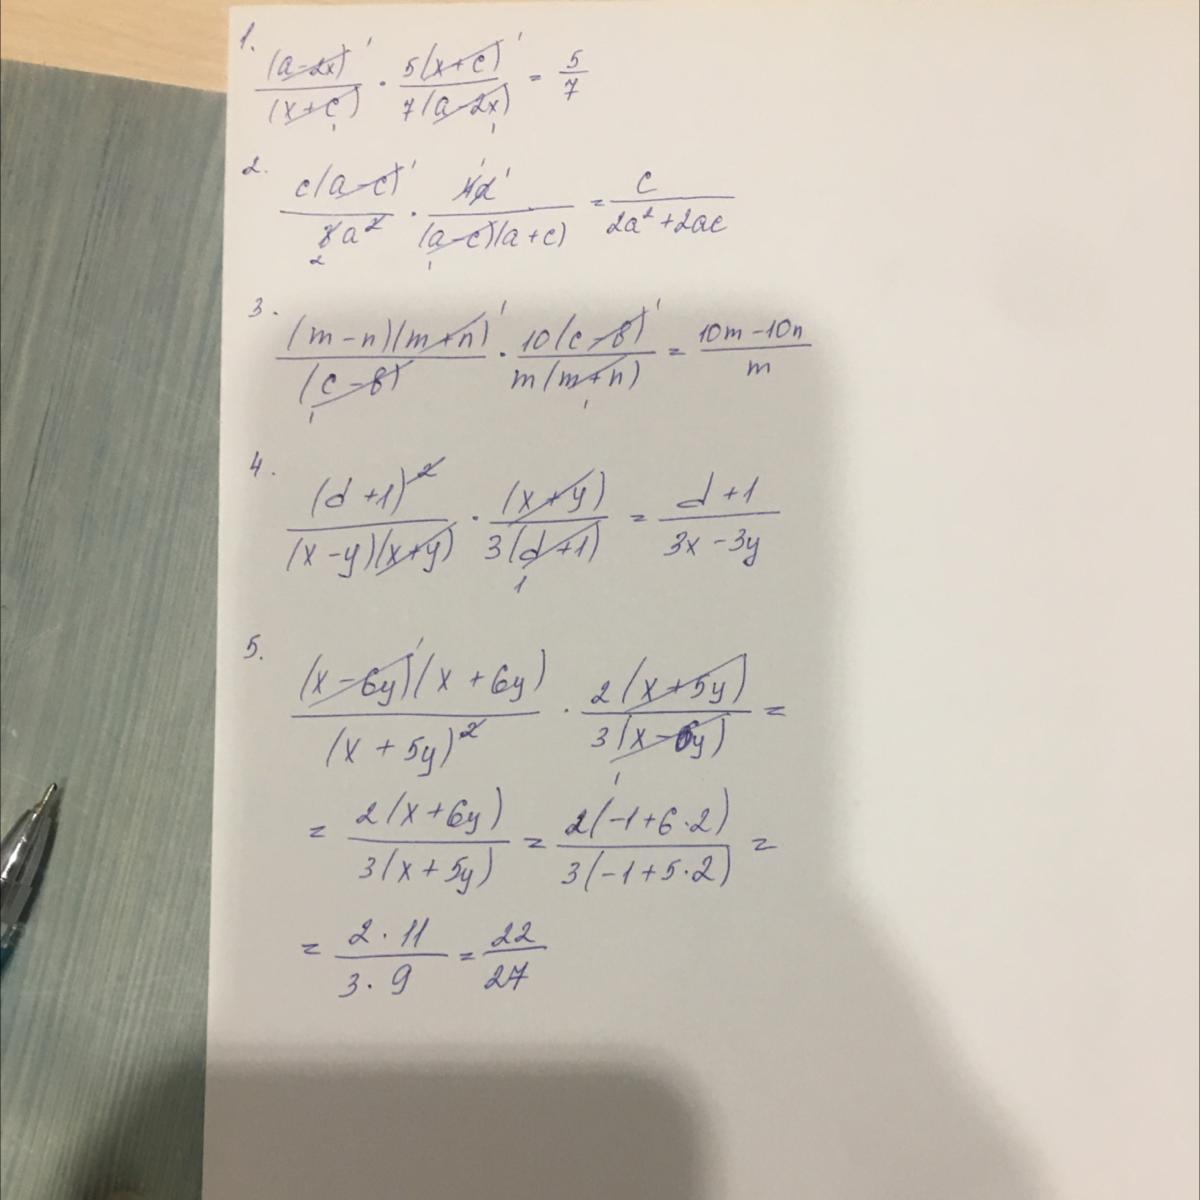 1. (a-2x)/(x+c) · 5(x+c)/7(a-2x) = 5/7
2. c(a-c)/8a² · 4a/(a-c)(a+c) = c/2a²+2ac
3. (m-n)(m+n)/(c-8) · 10(c-8)/m(m+n) = 10m-10n/m
4. (d+1)²/(x-y)(x+y) · (x+y)/3(d+1) = d+1/3x-3y
5. (x-6y)(x+6y)/(x+5y)² · 2(x+5y)/3(x-6y) =
= 2(x+6y)/3(x+5y) = 2(-1+6·2)/3(-1+5·2) =
= 2·11/3·9 = 22/27